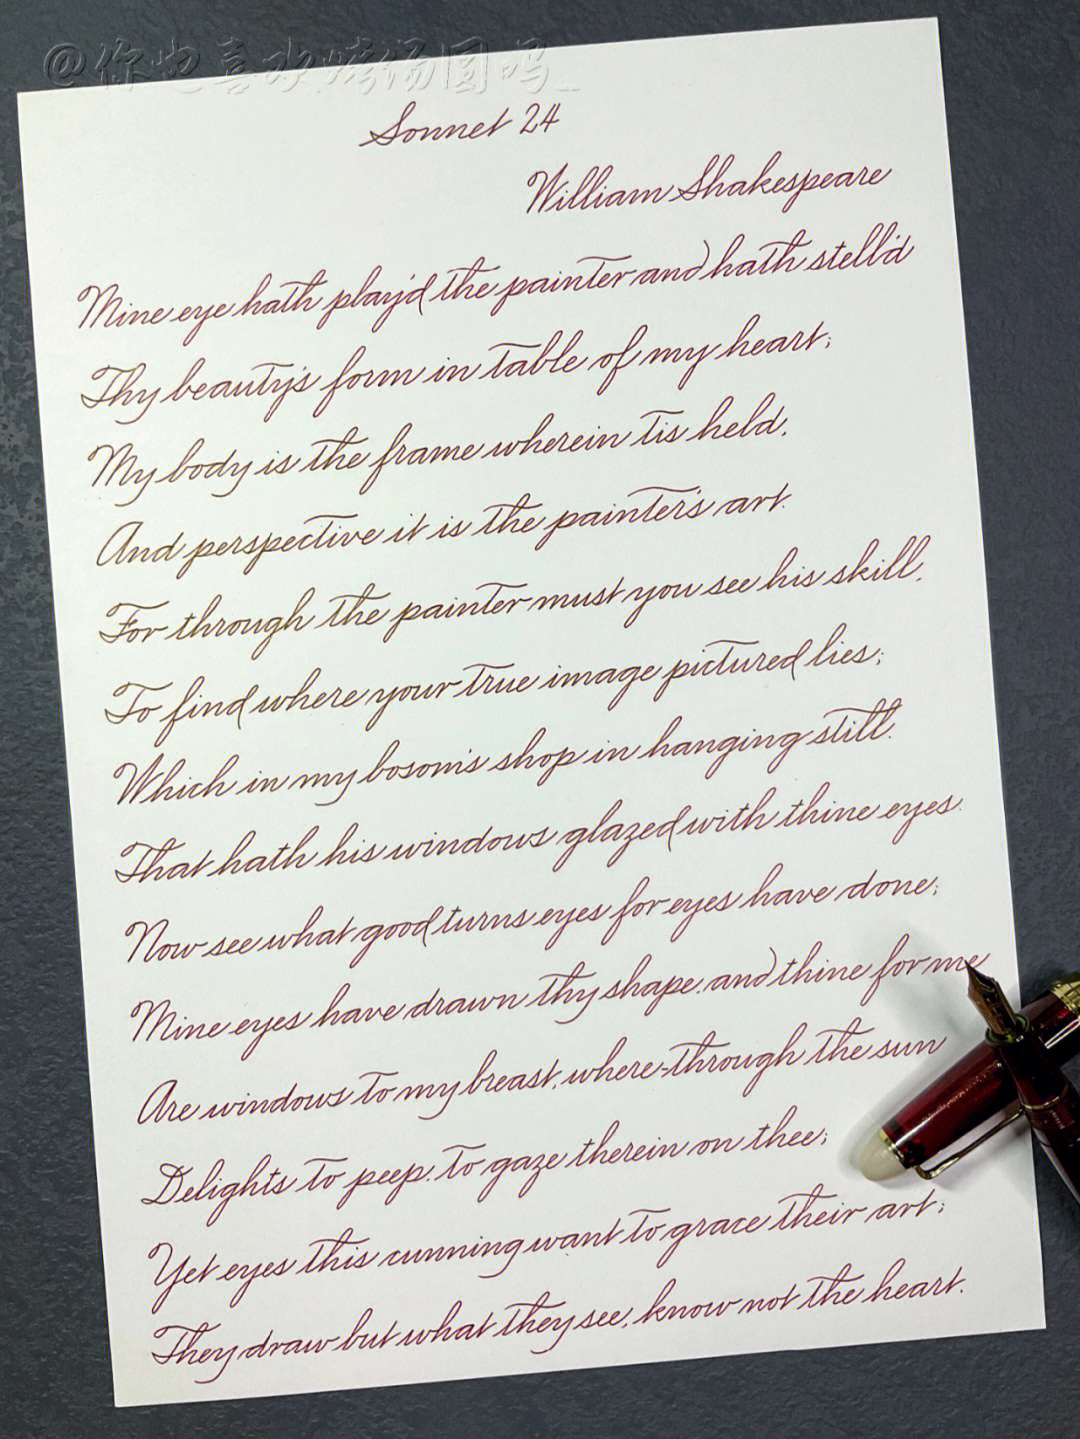 @你也喜欢烤汤圆吗_
Sonnet 24
William Shakespeare
Mine eye hath play'd the painter and hath stell'd
Thy beauty's form in table of my heart;
My body is the frame wherein tis held,
And perspective it is the painter's art.
For through the painter must you see his skill,
To find where your true image pictured lies;
Which in my bosom's shop in hanging still.
That hath his windows glazed with thine eyes.
Now see what good turns eyes for eyes have done;
Mine eyes have drawn thy shape, and thine for me
Are windows to my breast, where-through the sun
Delights to peep, to gaze therein on thee;
Yet eyes this cunning want to grace their art;
They draw but what they see, know not the heart.